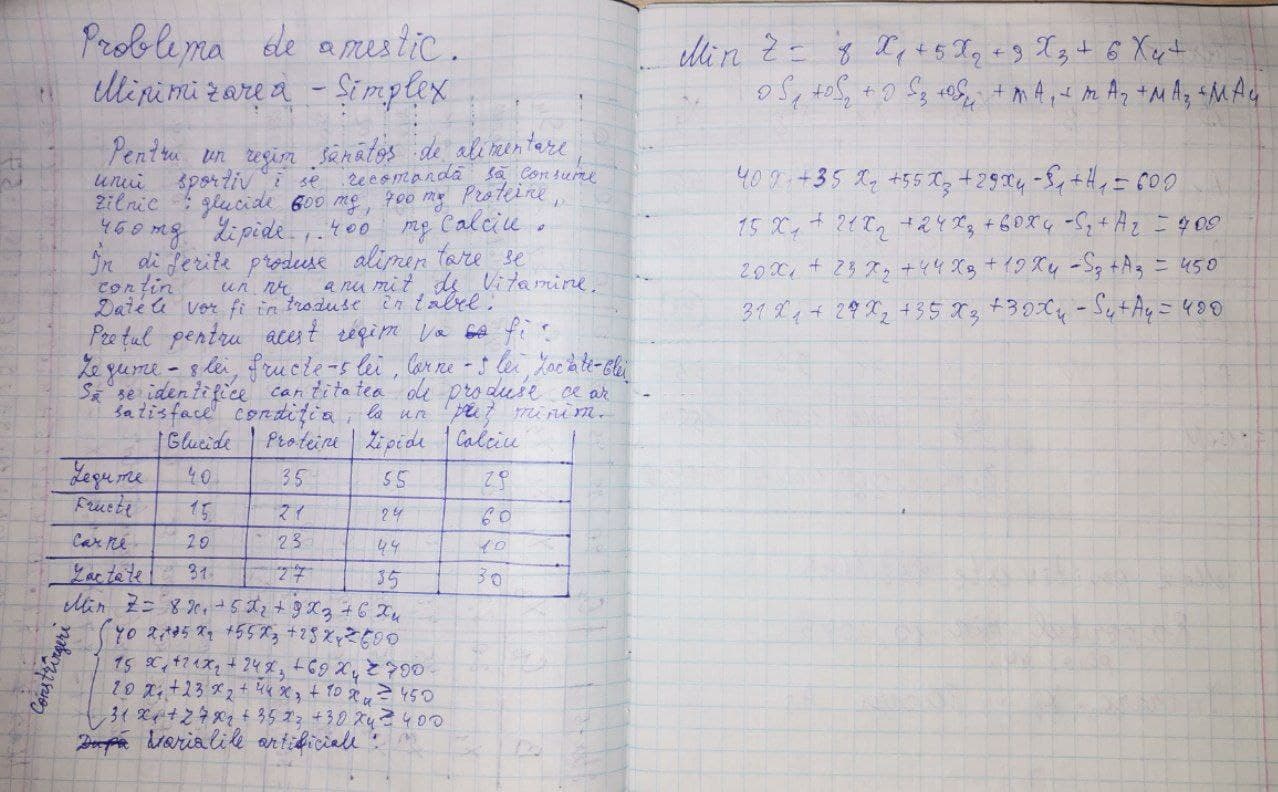 Problema de amestic.
Minimizarea - Simplex
Pentru un regim sănătos de alimentare,
unui sportiv i se recomandă să consume
zilnic : glucide 600 mg, 700 mg Proteine,
450 mg Lipide, 400 mg Calciu.
În diferite produse alimentare se
conțin un nr anumit de Vitamine.
Datele vor fi introduse în tabel:
Prețul pentru acest regim va fi :
Legume - 8 lei, fructe - 5 lei, Carne - 9 lei, Lactate - 6 lei
Să se identifice cantitatea de produse ce ar
satisface condiția, la un preț minim.
Glucide Proteine Lipide Calciu
Legume 40 35 55 29
Fructe 15 21 24 60
Carne 20 23 44 10
Lactate 31 27 35 30
Min Z = 8x₁ + 5x₂ + 9x₃ + 6x₄
Constrîngeri
40x₁+35x₂ +55x₃ +29x₄ ≥ 600
15x₁+21x₂+24x₃+60x₄ ≥ 700
20x₁+23x₂+44x₃+10x₄ ≥ 450
31x₁+27x₂+35x₃+30x₄ ≥ 400
După Variabile artificiale :
Min Z = 8x₁ + 5x₂ + 9x₃ + 6x₄ +
0S₁ + 0S₂ + 0S₃ + 0S₄ + MA₁ + MA₂ + MA₃ + MA₄
40x₁ + 35x₂ + 55x₃ + 29x₄ - S₁ + A₁ = 600
15x₁ + 21x₂ + 24x₃ + 60x₄ - S₂ + A₂ = 700
20x₁ + 23x₂ + 44x₃ + 10x₄ - S₃ + A₃ = 450
31x₁ + 27x₂ + 35x₃ + 30x₄ - S₄ + A₄ = 400